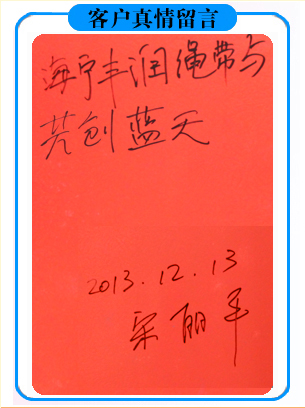 客户真情留言
海宁丰润绳带与
共创蓝天
2013.12.13
宋丽平